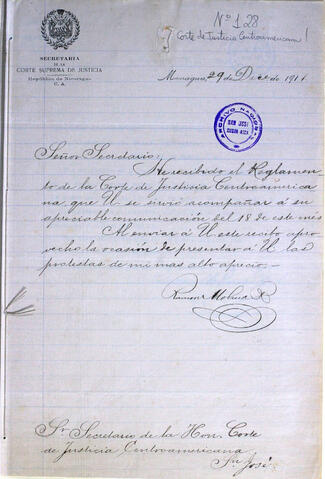 Nº 128
Corte de Justicia Centroamericana!
SECRETARIA
DE LA
CORTE SUPREMA DE JUSTICIA
República de Nicaragua
C. A.
Managua, 29 de Dbre de 1911
ARCHIVO NACIONAL
SAN JOSE
COSTA RICA
Señor Secretario:
He recibido el Reglamen-
to de la Corte de Justicia Centroaméricа-
na que U se sirvió acompañar á su
apreciable comunicación del 18 de este més
Al enviar á U este recibo apro-
vecho la ocasión de presentar á U las
protestas de mi mas alto aprecio.-
Ramon Molina R
Sr. Secretario de la Hon. Corte
de Justicia Centroamericana
Sn José